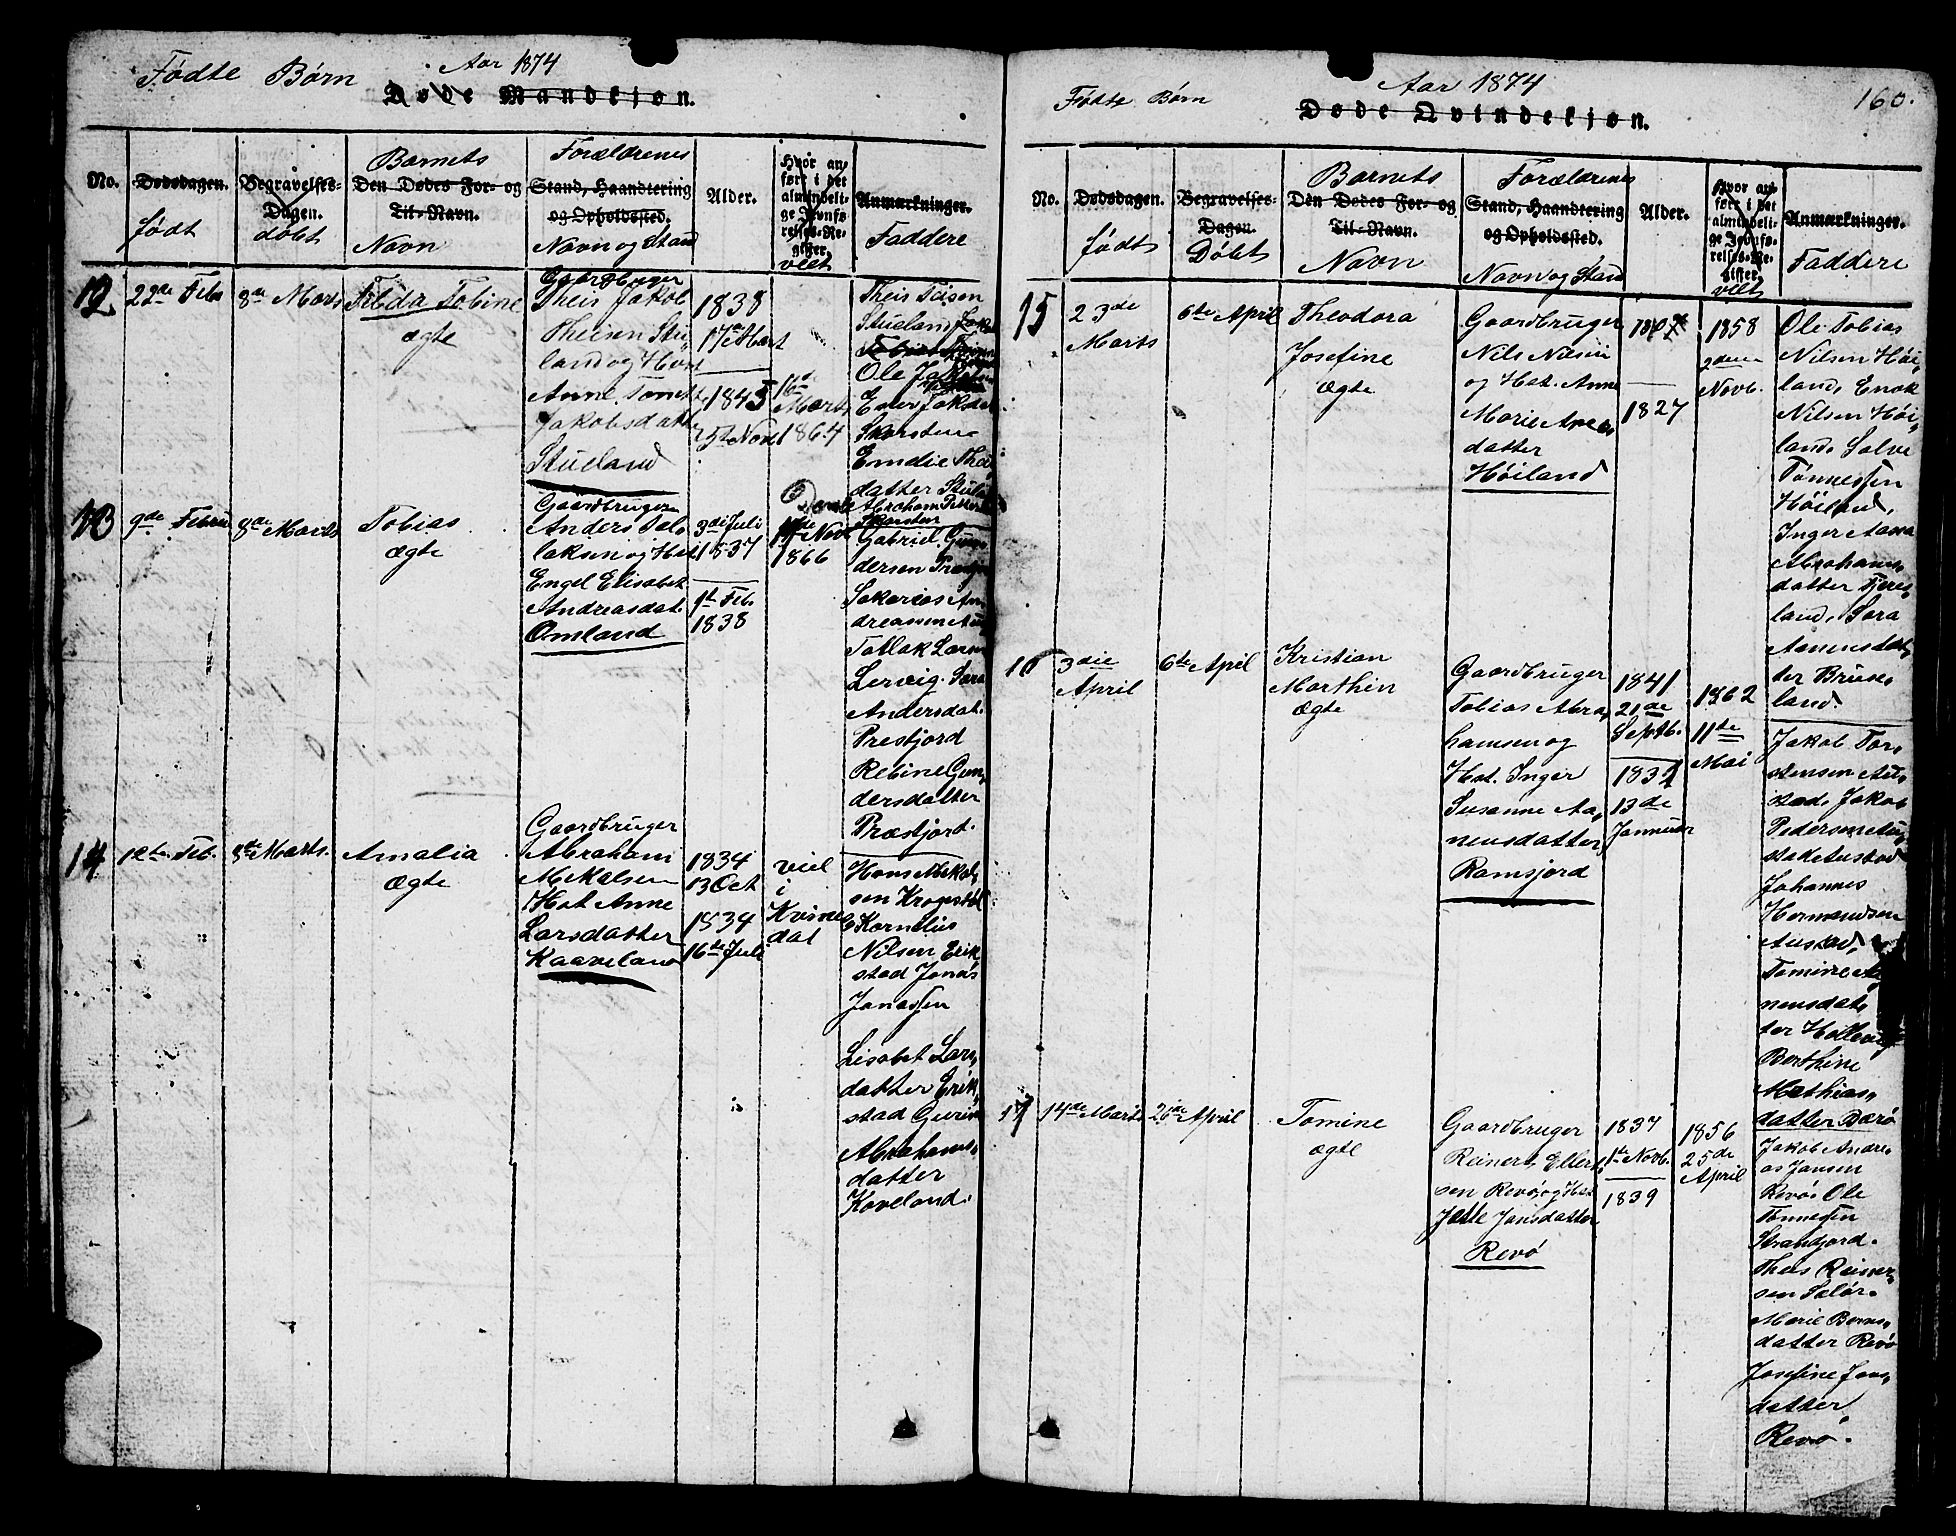 Fødte Børn
Aar 1874
Døde Mandkjøn.
No.
Dødsdagen.
født
Begravelses-
Dagen.
døbt
Barnets
Den Dødes For- og
Til-Navn.
Navn
Forældrenes
Stand, Haandtering
og Opholdssted.
Navn og Stand
Alder.
Hvor an-
føre i det
almindeli-
ge Jevnfø-
relses-Re-
gister.
viet
Anmærkninger.
Faddere
12
22de Febr
8de Marts
Tilda Tobine
ægte
Gaardbruger
Theis Jakob
Theisen Stu-
land og Hust
Anne Tomet
Jakobsdatt
Stueland
1838
17de Mart
1845
25de Nov
16de
Marts
1864
Theis Teisen
Stueland
Ole
Skarstene
Emelie Thei
datter Stul
Abraham Peders
Skarsten
13
9de Februa
8de Marts
Tobias
ægte
Gaardbruger
Anders Tol-
laksen og Hust
Engel Elisabet
Andreasdat.
Omland
3die Juli
1837
9de Feb.
1838
Nov
1866
Gabriel Gun
dersen Præstjor
Sakarias An
Tollak Larsen
Lervig. Sara
Andersdat.
Prestjord
Rebine Gun,
dersdatter
Præstjord.
14
12te Feb.
8de Marts.
Amalia
Ægte
Gaardbruger
Abraham
Mikalsen
Hst Anne
Larsdatter
Kaaveland
1834
13 Oct
1834
16de Juli
viet
i
Kvines
dal
Hans Mikal
sen Krogstøl
Kornelius
Nilsen Erik
stad Jonas
Jonassen
Lisabet Lars,
datter Erik,
stad Gurine
Abrahams,
datter
Koveland.
Fødte Børn
Aar 1874
160.
Døde Qvindekjøn.
No.
Dødsdagen.
født
Begravelses-
Dagen.
Døbt
Barnets
Den Dødes For- og
Til-Navn.
Navn
Forældrenes
Stand, Haandtering
og Opholdssted.
Navn og Stand
Alder.
Hvor an-
føre i det
almindeli-
ge Jevnfø-
relses-Re-
gister.
viet
Anmærkninger.
Faddere
15
23de
Marts
6te April
Theodora
Josefine
Ægte
Gaardbruger
Nils Nilsen
og Hst. Anne
Marie Anen
datter
Høiland
1827
1858
2den
Novb.
Ole Tobias
Nilsen Høi,
land, Enok
Nilsen Høi,
land, Salve
Tønnessen
Høiland,
Inger Aasa
Abrahams
datter Tjeres
land, Sara
Aanensdat,
ter Bruse,
land.
16
3die
April
6te April
Kristian
Marthin
Ægte
Gaardbruger
Tobias Abra,
hamsen og
Hst. Inger
Susanne Aa,
nensdatter
Ramsjord
1841
21de
Septb.
1832
13de
Januar
1862
11te
Mai
Jakob Tor,
stensen Au,
stad, Jakob
Pedersen
Austad
Johannes
Hermandsen
Austad,
Tomine A
nensdat,
ter
Berthine
Mathias,
datter Barø
17
14de Marts
26de April
Tomine
ægte
Gaardbruger
Reinert Ellert,
sen Revø, og Hst
Jette Jansdatter
Revø
1837
1te Novb.
1839
1856
25de
April
Jakob Andre
as Jansen
Revø. Ole
Tønnessen
Strandjord.
Theis Reiner
sen Saløe.
Marie Berns,
datter Revø
Josefine Jans,
datter
Revø.